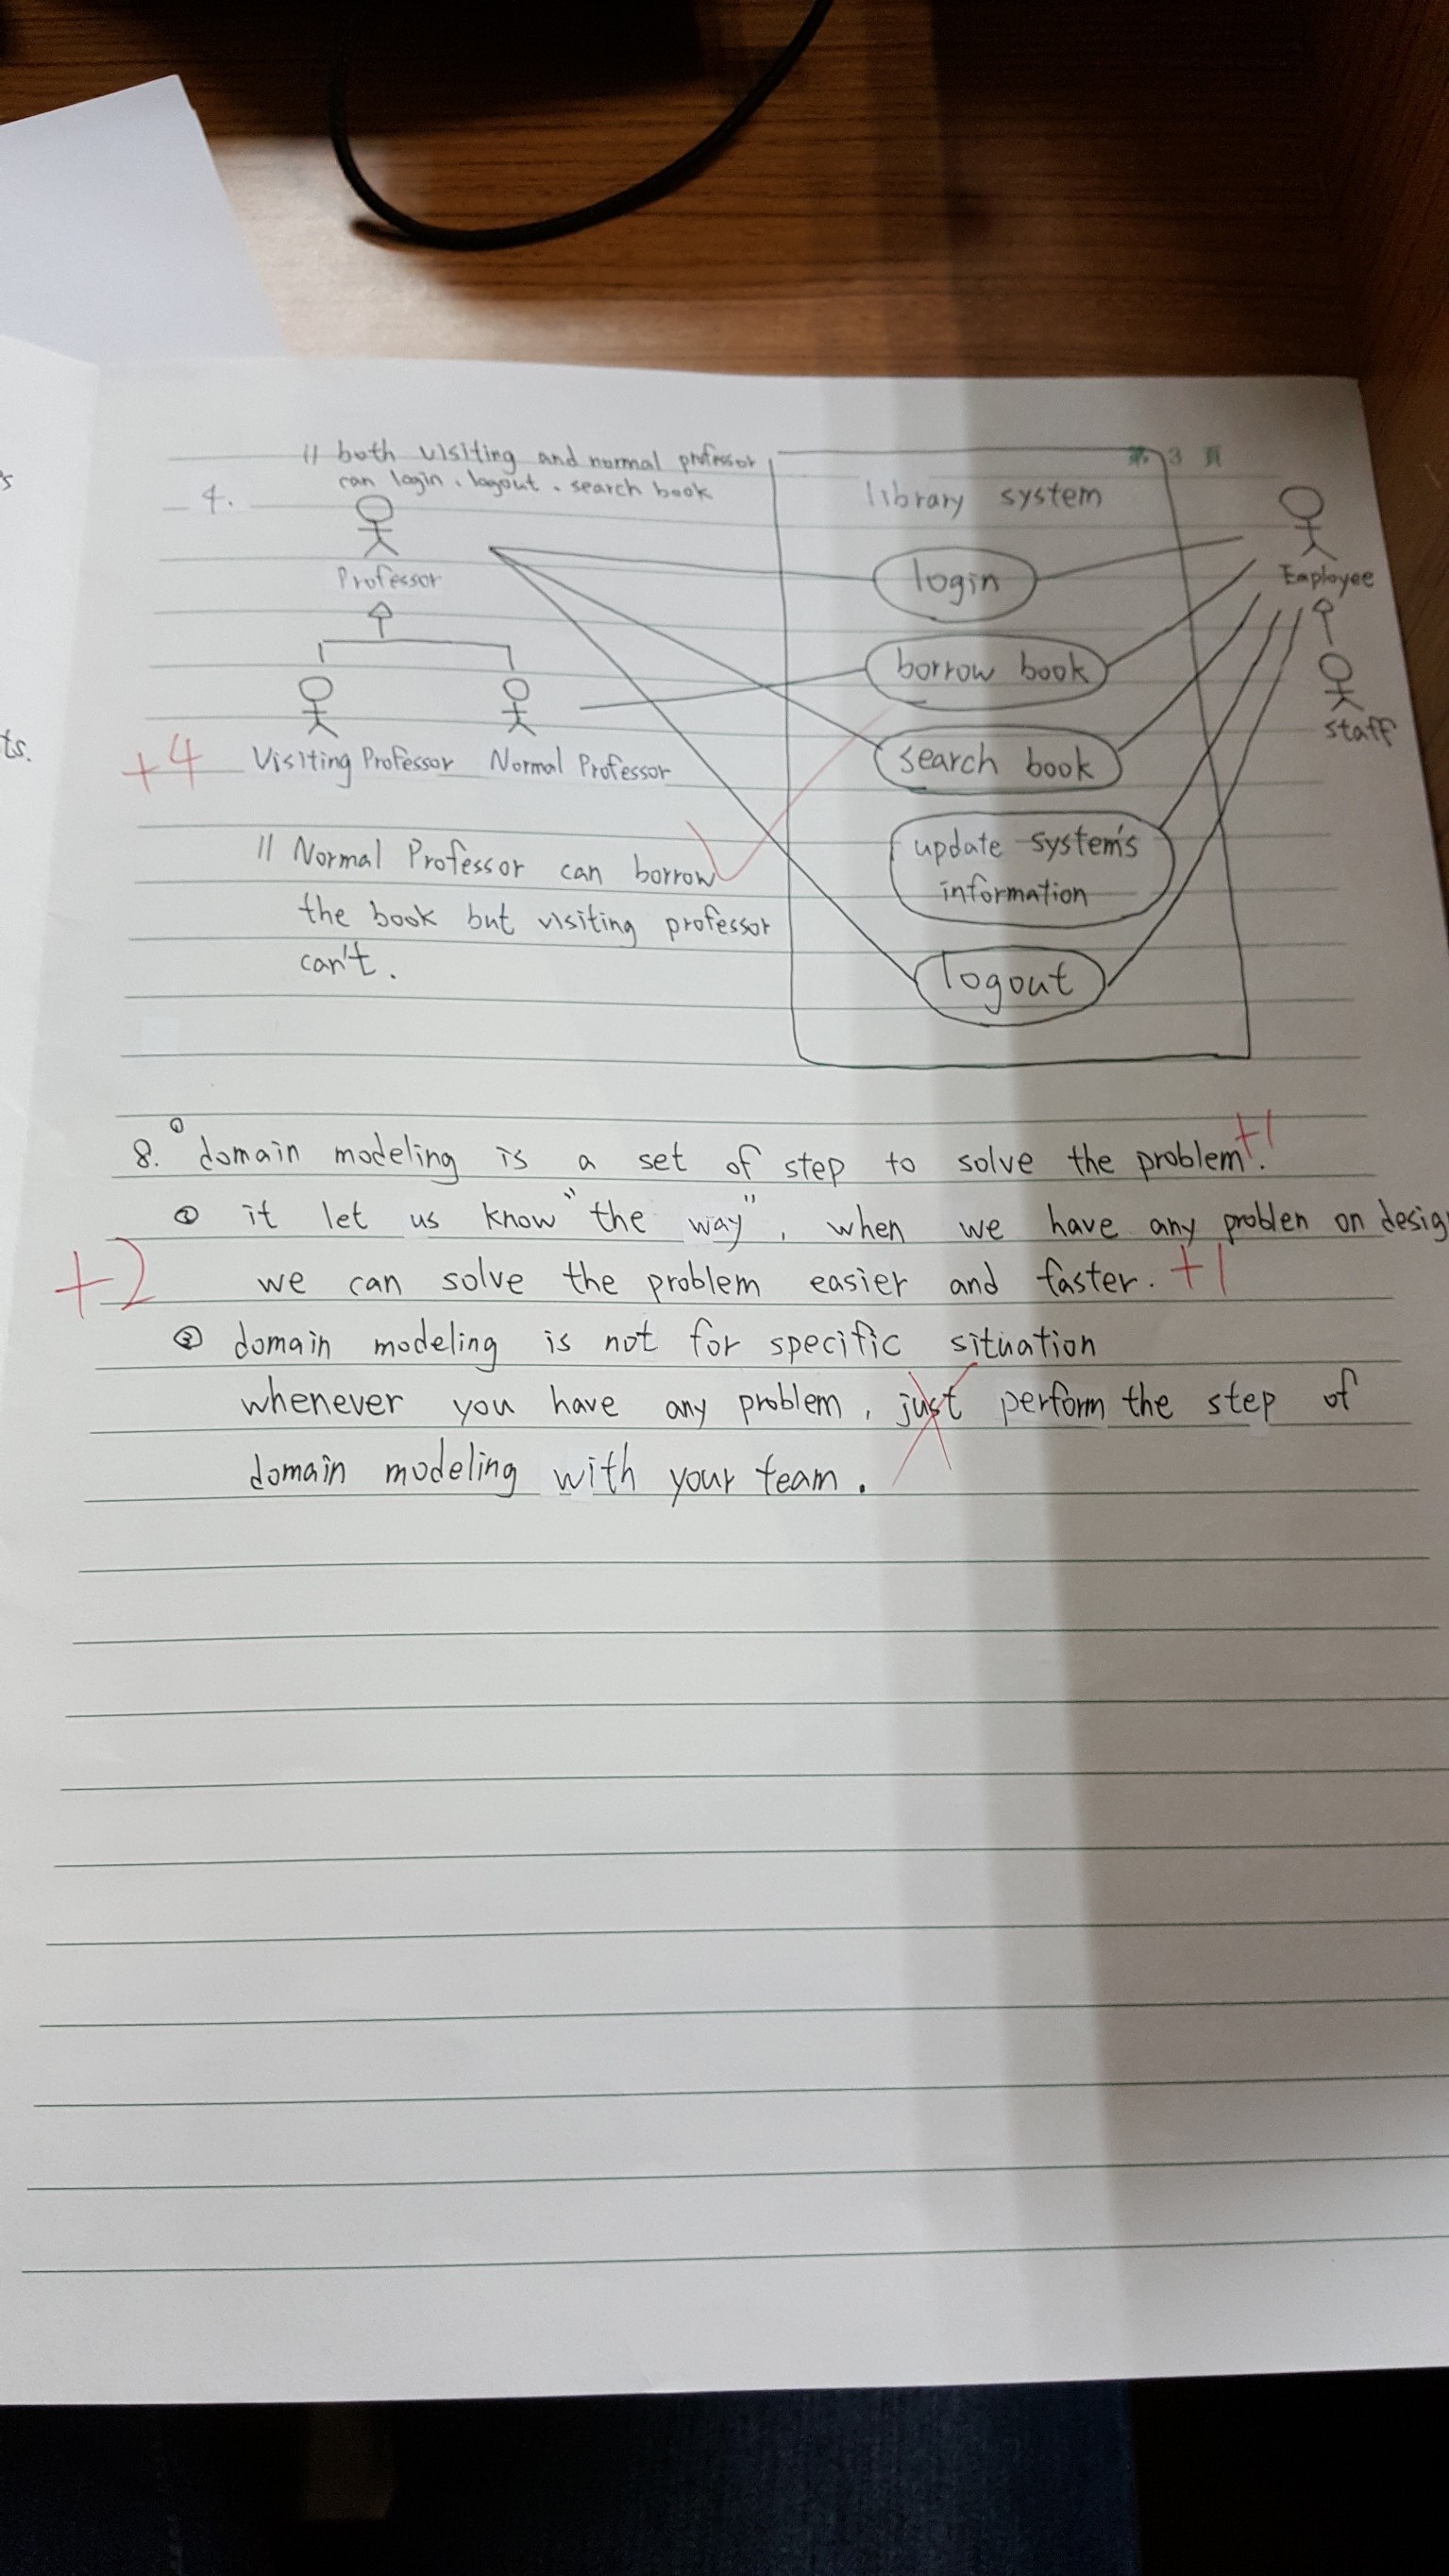 第 3 頁
// both visiting and normal professor
can login、logout、search book
4.
Professor
Visiting Professor
Normal Professor
+4
// Normal Professor can borrow
the book but visiting professor
can't.
library system
login
borrow book
search book
update system's
information
logout
Employee
staff
s
ts.
8. ① domain modeling is a set of step to solve the problem. +1
② it let us know "the way", when we have any problen on desig
+2
we can solve the problem easier and faster. +1
③ domain modeling is not for specific situation
whenever you have any problem, just perform the step of
domain modeling with your team.